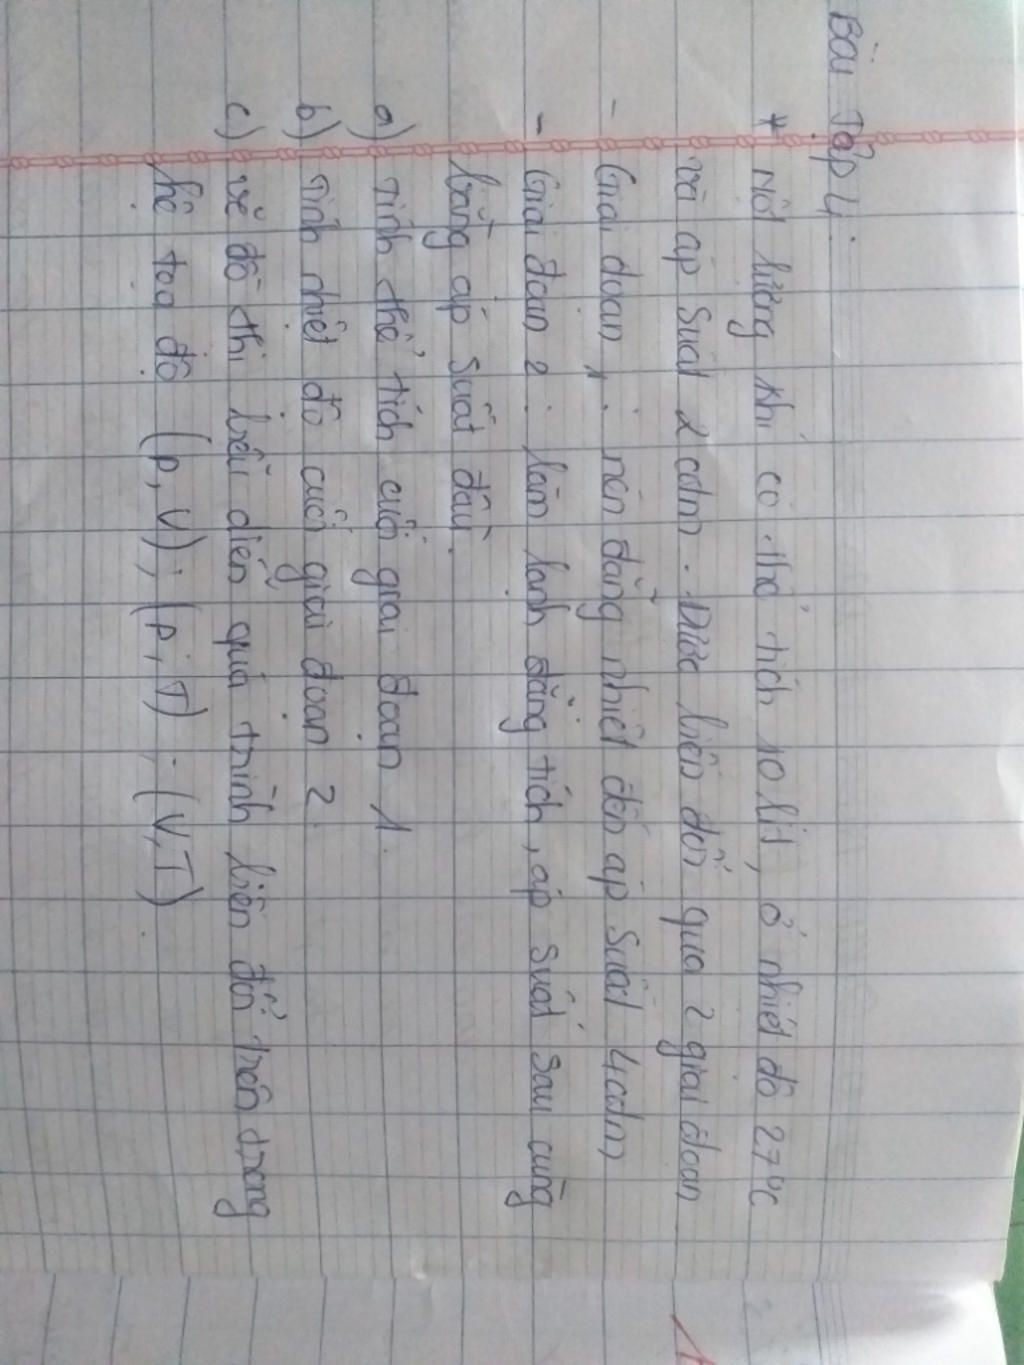 Bài Tập 4:
* Một lượng khí có thể tích 10 lít, ở nhiệt độ 27°C
và áp suất 2 atm. Được biến đổi qua 2 giai đoạn
- Giai đoạn 1: nén đẳng nhiệt đến áp suất 4 atm
- Giai đoạn 2: làm lạnh đẳng tích, áp suất sau cùng
bằng áp suất đầu.
a) Tính thể tích cuối giai đoạn 1.
b) Tính nhiệt độ cuối giai đoạn 2.
c) vẽ đồ thị biểu diễn quá trình biến đổi trên trong
hệ tọa độ (p, V); (p; T); (V, T).